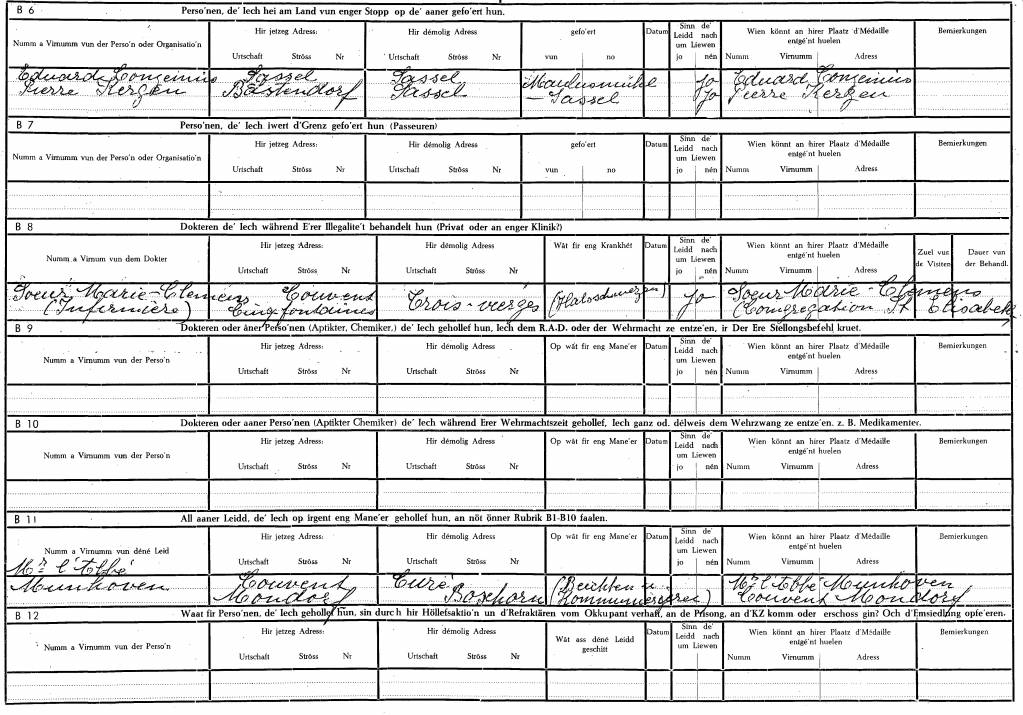 B 6 Perso'nen, de' Iech hei am Land vun enger Stopp op de' aaner gefo'ert hun.
Numm a Virnumm vun der Perso'n oder Organisatio'n Hir jetzeg Adress: Urtschaft Ströss Nr Hir démolig Adress Urtschaft Ströss Nr gefo'ert vun no Datum Sinn de' Leidd nach um Liewen jo nén Wien könnt an hirer Plaatz d'Médaille entgé'nt huelen Numm Virnumm Adress Bemierkungen
Eduard Conzemius Sassel Sassel Maulusmühle jo Eduard Conzemius
Pierre Kergen Bastendorf Sassel – Sassel jo Pierre Kergen
B 7 Perso'nen, de' Iech iwert d'Grenz gefo'ert hun (Passeuren)
Numm a Virnumm vun der Perso'n oder Organisatio'n Hir jetzeg Adress: Urtschaft Ströss Nr Hir démolig Adress Urtschaft Ströss Nr gefo'ert vun no Datum Sinn de' Leidd nach um Liewen jo nén Wien könnt an hirer Plaatz d'Médaille entgé'nt huelen Numm Virnumm Adress Bemierkungen
B 8 Dokteren de' Iech während E'rer Illegalite't behandelt hun (Privat oder an enger Klinik?)
Numm a Virnum vun dem Dokter Hir jetzeg Adress: Urtschaft Ströss Nr Hir démolig Adress Urtschaft Ströss Nr Wât fir eng Krankhét Datum Sinn de' Leidd nach um Liewen jo nén Wien könnt an hirer Plaatz d'Médaille entgé'nt huelen Numm Virnumm Adress Zuel vun de Visiten Dauer vun der Behandl.
Soeur Marie-Clemens Couvent Trois-vierges (Halsschmerzen) jo Soeur Marie-Clemens
(Infirmière) Cinqfontaines (Congregation St Elisabeth
B 9 Dokteren oder âner Perso'nen (Aptikter, Chemiker,) de' Iech gehollef hun, Iech dem R.A.D. oder der Wehrmacht ze entze'en, ir Der Ere Stellongsbefehl kruet.
Numm a Virnumm vun der Perso'n Hir jetzeg Adress: Urtschaft Ströss Nr Hir démolig Adress Urtschaft Ströss Nr Op wât fir eng Mane'er Datum Sinn de' Leidd nach um Liewen jo nén Wien könnt an hirer Plaatz d'Médaille entgé'nt huelen Numm Virnumm Adress Bemierkungen
B 10 Dokteren oder aaner Perso'nen (Aptikter Chemiker) de' Iech während Erer Wehrmachtszeit gehollef, Iech ganz od. délweis dem Wehrzwang ze entze'en. z. B. Medikamenter.
Numm a Virnumm vun der Perso'n Hir jetzeg Adress: Urtschaft Ströss Nr Hir démolig Adress Urtschaft Ströss Nr Op wât fir eng Mane'er Datum Sinn de' Leidd nach um Liewen jo nén Wien könnt an hirer Plaatz d'Médaille entgé'nt huelen Numm Virnumm Adress Bemierkungen
B 11 All aaner Leidd, de' Iech op irgent eng Mane'er gehollef hun, an nôt önner Rubrik B1-B10 faalen.
Numm a Virnumm vun déné Leid Hir jetzeg Adress: Urtschaft Ströss Nr Hir démolig Adress Urtschaft Ströss Nr Op wât fir eng Mane'er Datum Sinn de' Leidd nach um Liewen jo nén Wien könnt an hirer Plaatz d'Médaille entgé'nt huelen Numm Virnumm Adress Bemierkungen
Mr l'Abbé
Munhoven Couvent Curé (Beichten u. Mr l'Abbé Munhoven
Mondorf Boxhorn Kommunizieren) Couvent Mondorf
B 12 Waat fir Perso'nen, de' Iech gehollef hun, sin durch hir Höllefsaktio'n un d'Refraktären vom Okkupant verhaft, an de Prisong, an d'KZ komm oder erschoss gin? Och d'Emsiedlung opfe'eren.
Numm a Virnumm vun der Perso'n Hir jetzeg Adress: Urtschaft Ströss Nr Hir démolig Adress Urtschaft Ströss Nr Wät ass déné Leidd geschitt Datum Sinn de' Leidd nach um Liewen jo nén Wien könnt an hirer Plaatz d'Médaille entgé'nt huelen Numm Virnumm Adress Bemierkungen